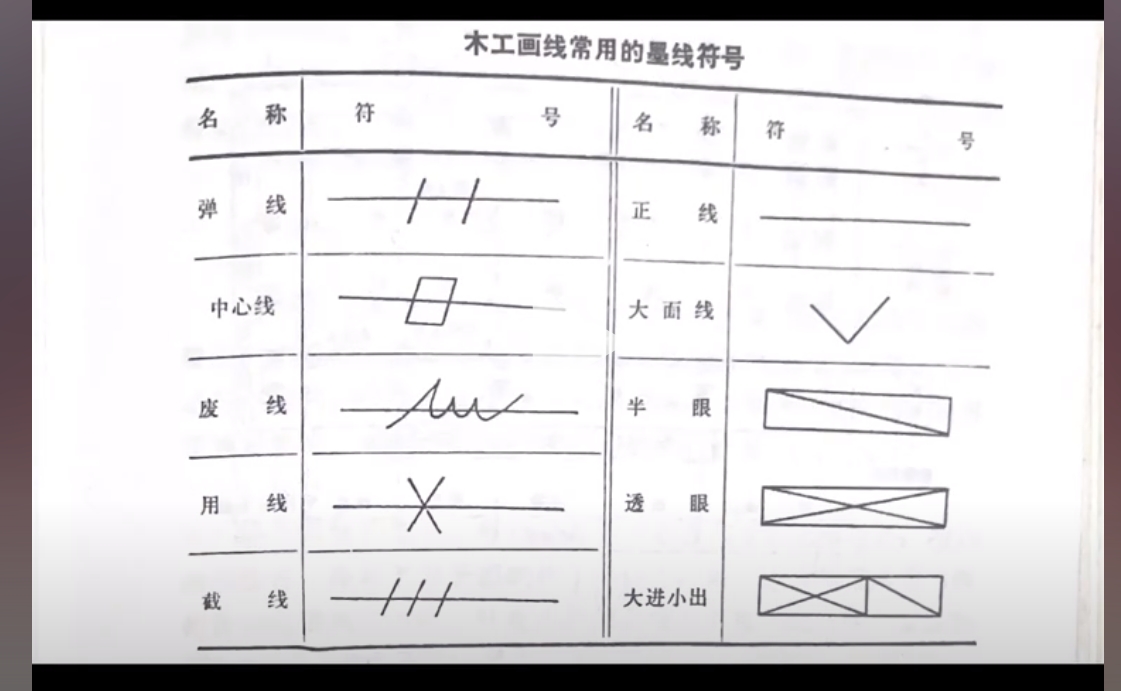 木工画线常用的墨线符号
名 称 符 号 名 称 符 号
弹 线 正 线
中心线 大面线
废 线 半 眼
用 线 透 眼
截 线 大进小出